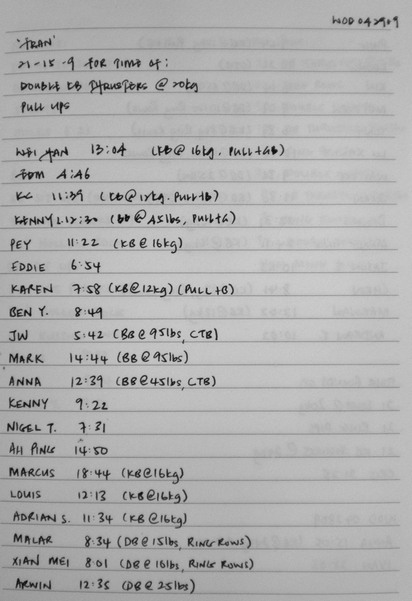 WOD 042909
'FRAN'
21-15-9 FOR TIME OF:
DOUBLE KB THRUSTERS @ 20kg
PULL UPS
WEI YAN 13:04 (KB@ 16kg. PULL+GB)
EDM 4:46
KC 11:39 (KB@12kg. PULL+B)
KENNY L. 12:30 (BB@45lbs, PULL+G)
PEY 11:22 (KB@16kg)
EDDIE 6:54
KAREN 7:58 (KB@12kg) (PULL+B)
BEN Y. 8:49
JW 5:42 (BB@95lbs, CTB)
MARK 14:44 (BB@95lbs)
ANNA 12:39 (BB@45lbs, CTB)
KENNY 9:22
NIGEL T. 7:31
AH PING 14:50
MARCUS 18:44 (KB@16kg)
LOUIS 12:13 (KB@16kg)
ADRIAN S. 11:34 (KB@16kg)
MALAR 8:34 (DB@15lbs, RING ROWS)
XIAN MEI 8:01 (DB@10lbs, RING ROWS)
ARWIN 12:35 (DB@25lbs)